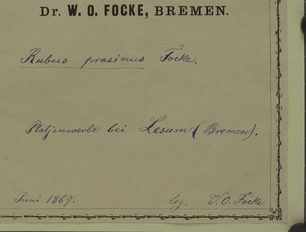 Dr. W. O. FOCKE, BREMEN.
Rubus prasinus Focke.
Platjenwerbe bei Lesum (Bremen).
Juni 1869. leg. W. O. Focke